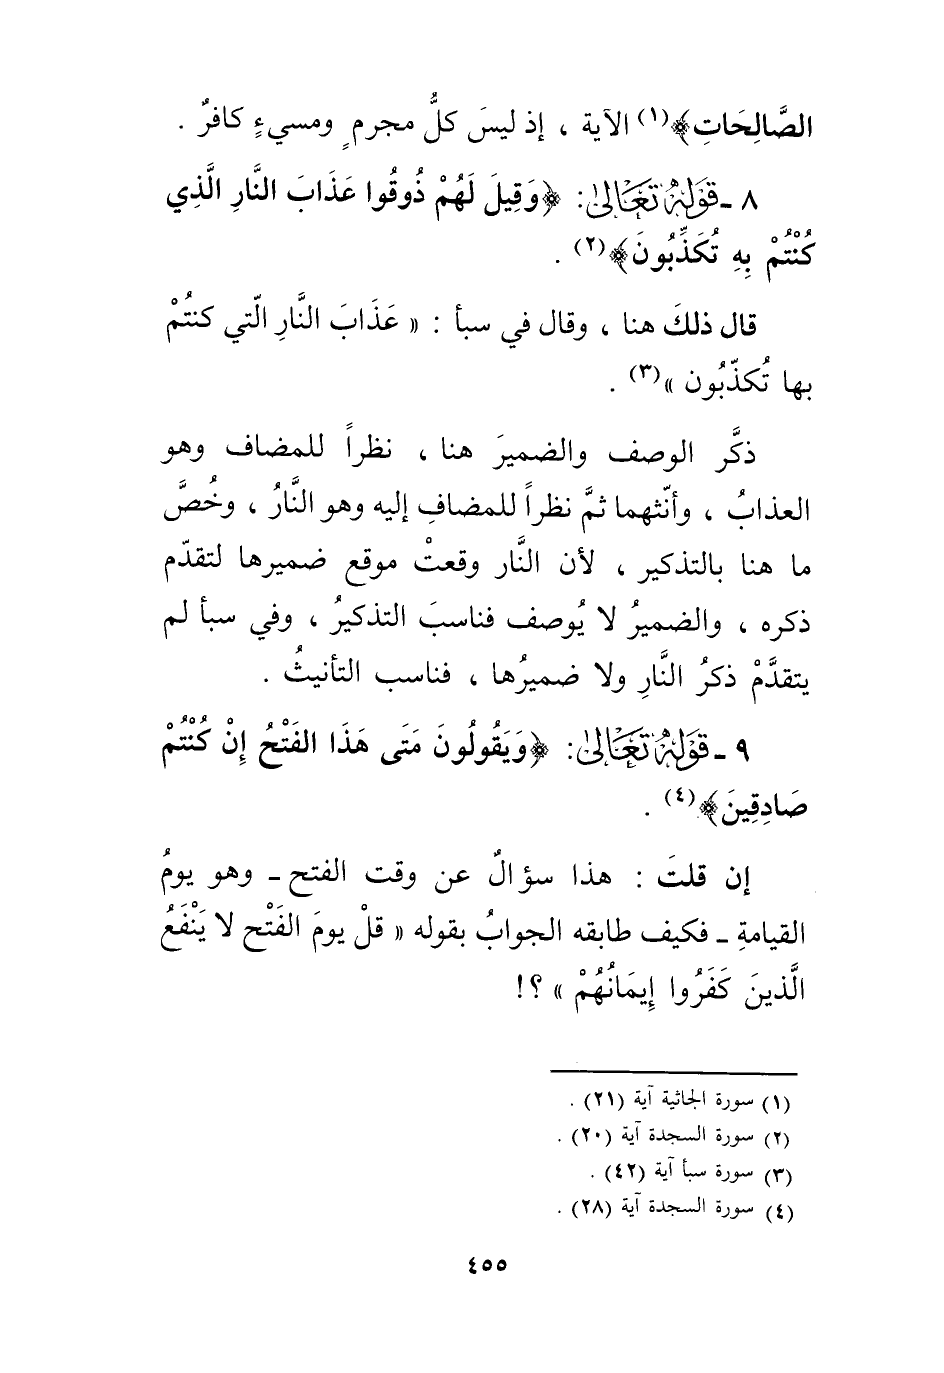 الصَّالِحَاتِ﴾(١) الآية ، إذ ليسَ كلُّ مجرمٍ ومسيءٍ كافرٌ .
٨ ـ قَوْلُهُ تَعَالىٰ: ﴿وَقِيلَ لَهُمْ ذُوقُوا عَذَابَ النَّارِ الَّذِي
كُنْتُمْ بِهِ تُكَذِّبُونَ﴾(٢) .
قال ذلكَ هنا ، وقال في سبأ : « عَذَابَ النَّارِ الّتي كنتُمْ
بها تُكذّبُون »(٣) .
ذكَّر الوصف والضميرَ هنا ، نظراً للمضاف وهو
العذابُ ، وأنّثهما ثمَّ نظراً للمضافِ إليه وهو النَّارُ ، وخُصَّ
ما هنا بالتذكير ، لأن النَّار وقعتْ موقع ضميرها لتقدّم
ذكره ، والضميرُ لا يُوصف فناسبَ التذكيرُ ، وفي سبأ لم
يتقدَّمْ ذكرُ النَّارِ ولا ضميرُها ، فناسب التأنيثُ .
٩ ـ قَوْلُهُ تَعَالىٰ: ﴿وَيَقُولُونَ مَتَى هَذَا الفَتْحُ إِنْ كُنْتُمْ
صَادِقِينَ﴾(٤) .
إن قلتَ : هذا سؤالٌ عن وقت الفتح ـ وهو يومُ
القيامةِ ـ فكيف طابقه الجوابُ بقوله « قلْ يومَ الفَتْح لا يَنْفَعُ
الَّذينَ كَفَرُوا إِيمَانُهُمْ » ؟!
(١) سورة الجاثية آية (٢١) .
(٢) سورة السجدة آية (٢٠) .
(٣) سورة سبأ آية (٤٢) .
(٤) سورة السجدة آية (٢٨) .
٤٥٥